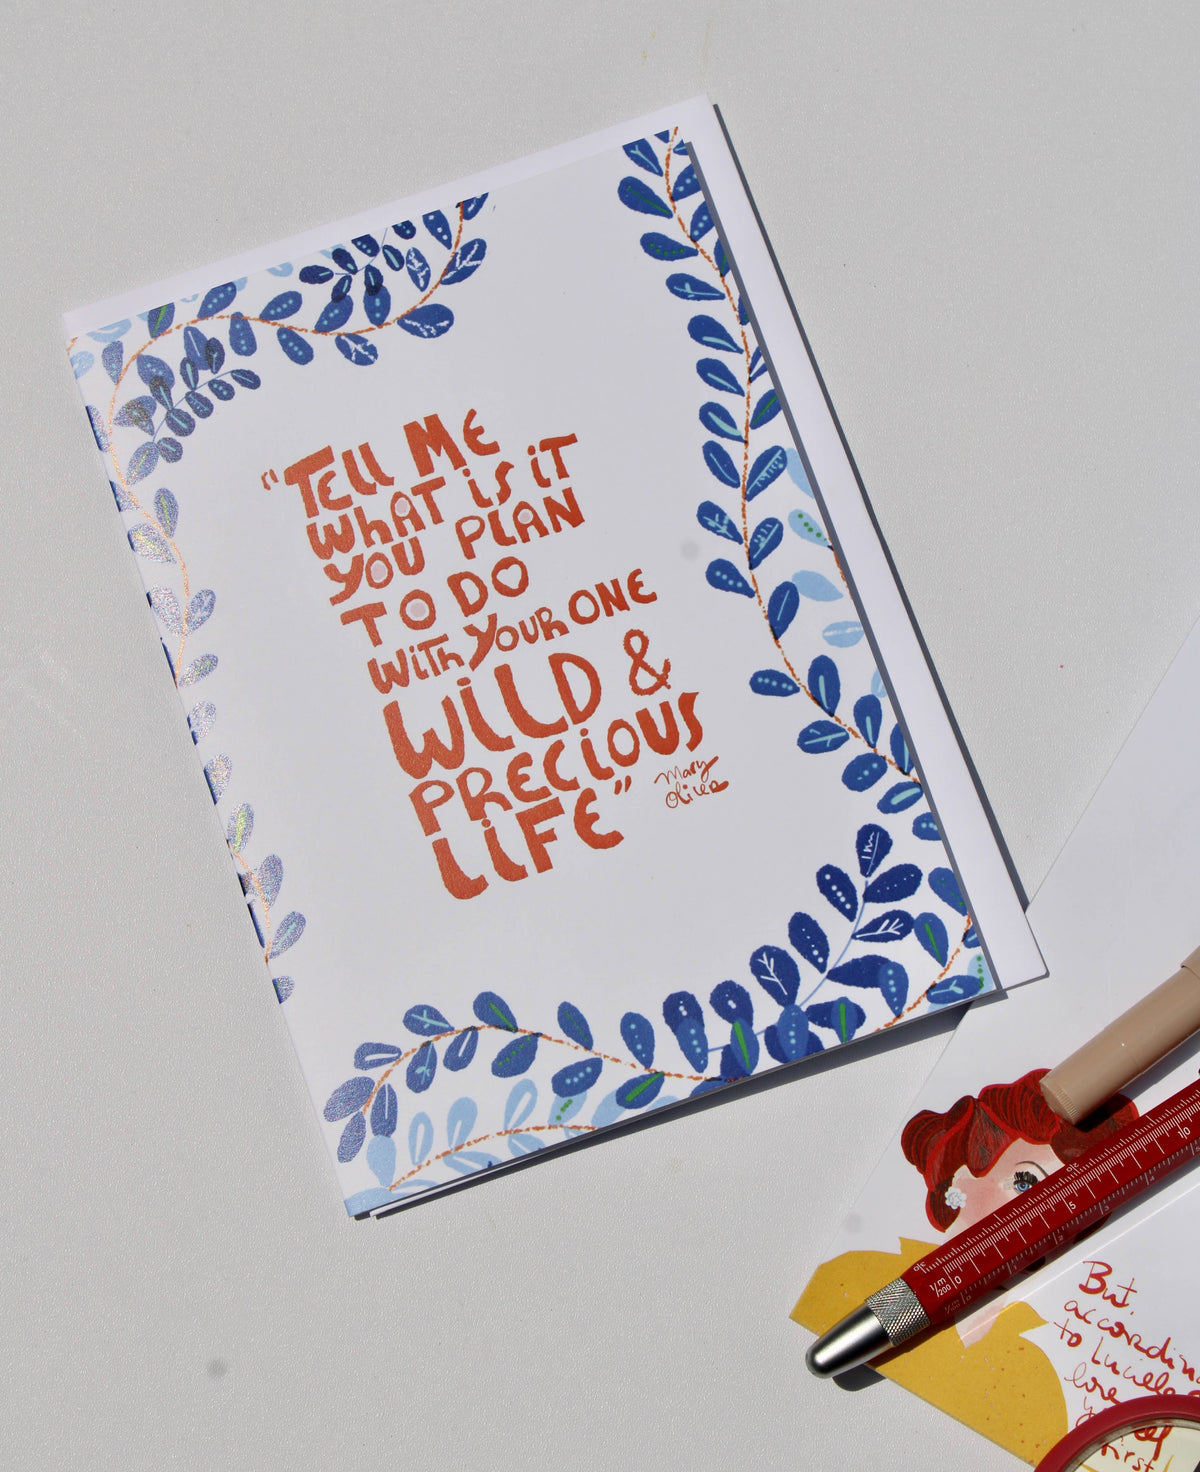 “TELL ME
WHAT IS IT
YOU PLAN
TO DO
WITH YOUR ONE
WILD &
PRECIOUS
LIFE”
Mary
Oliver
But,
according
to Lucille
love
first
1/m
200
0
5
10